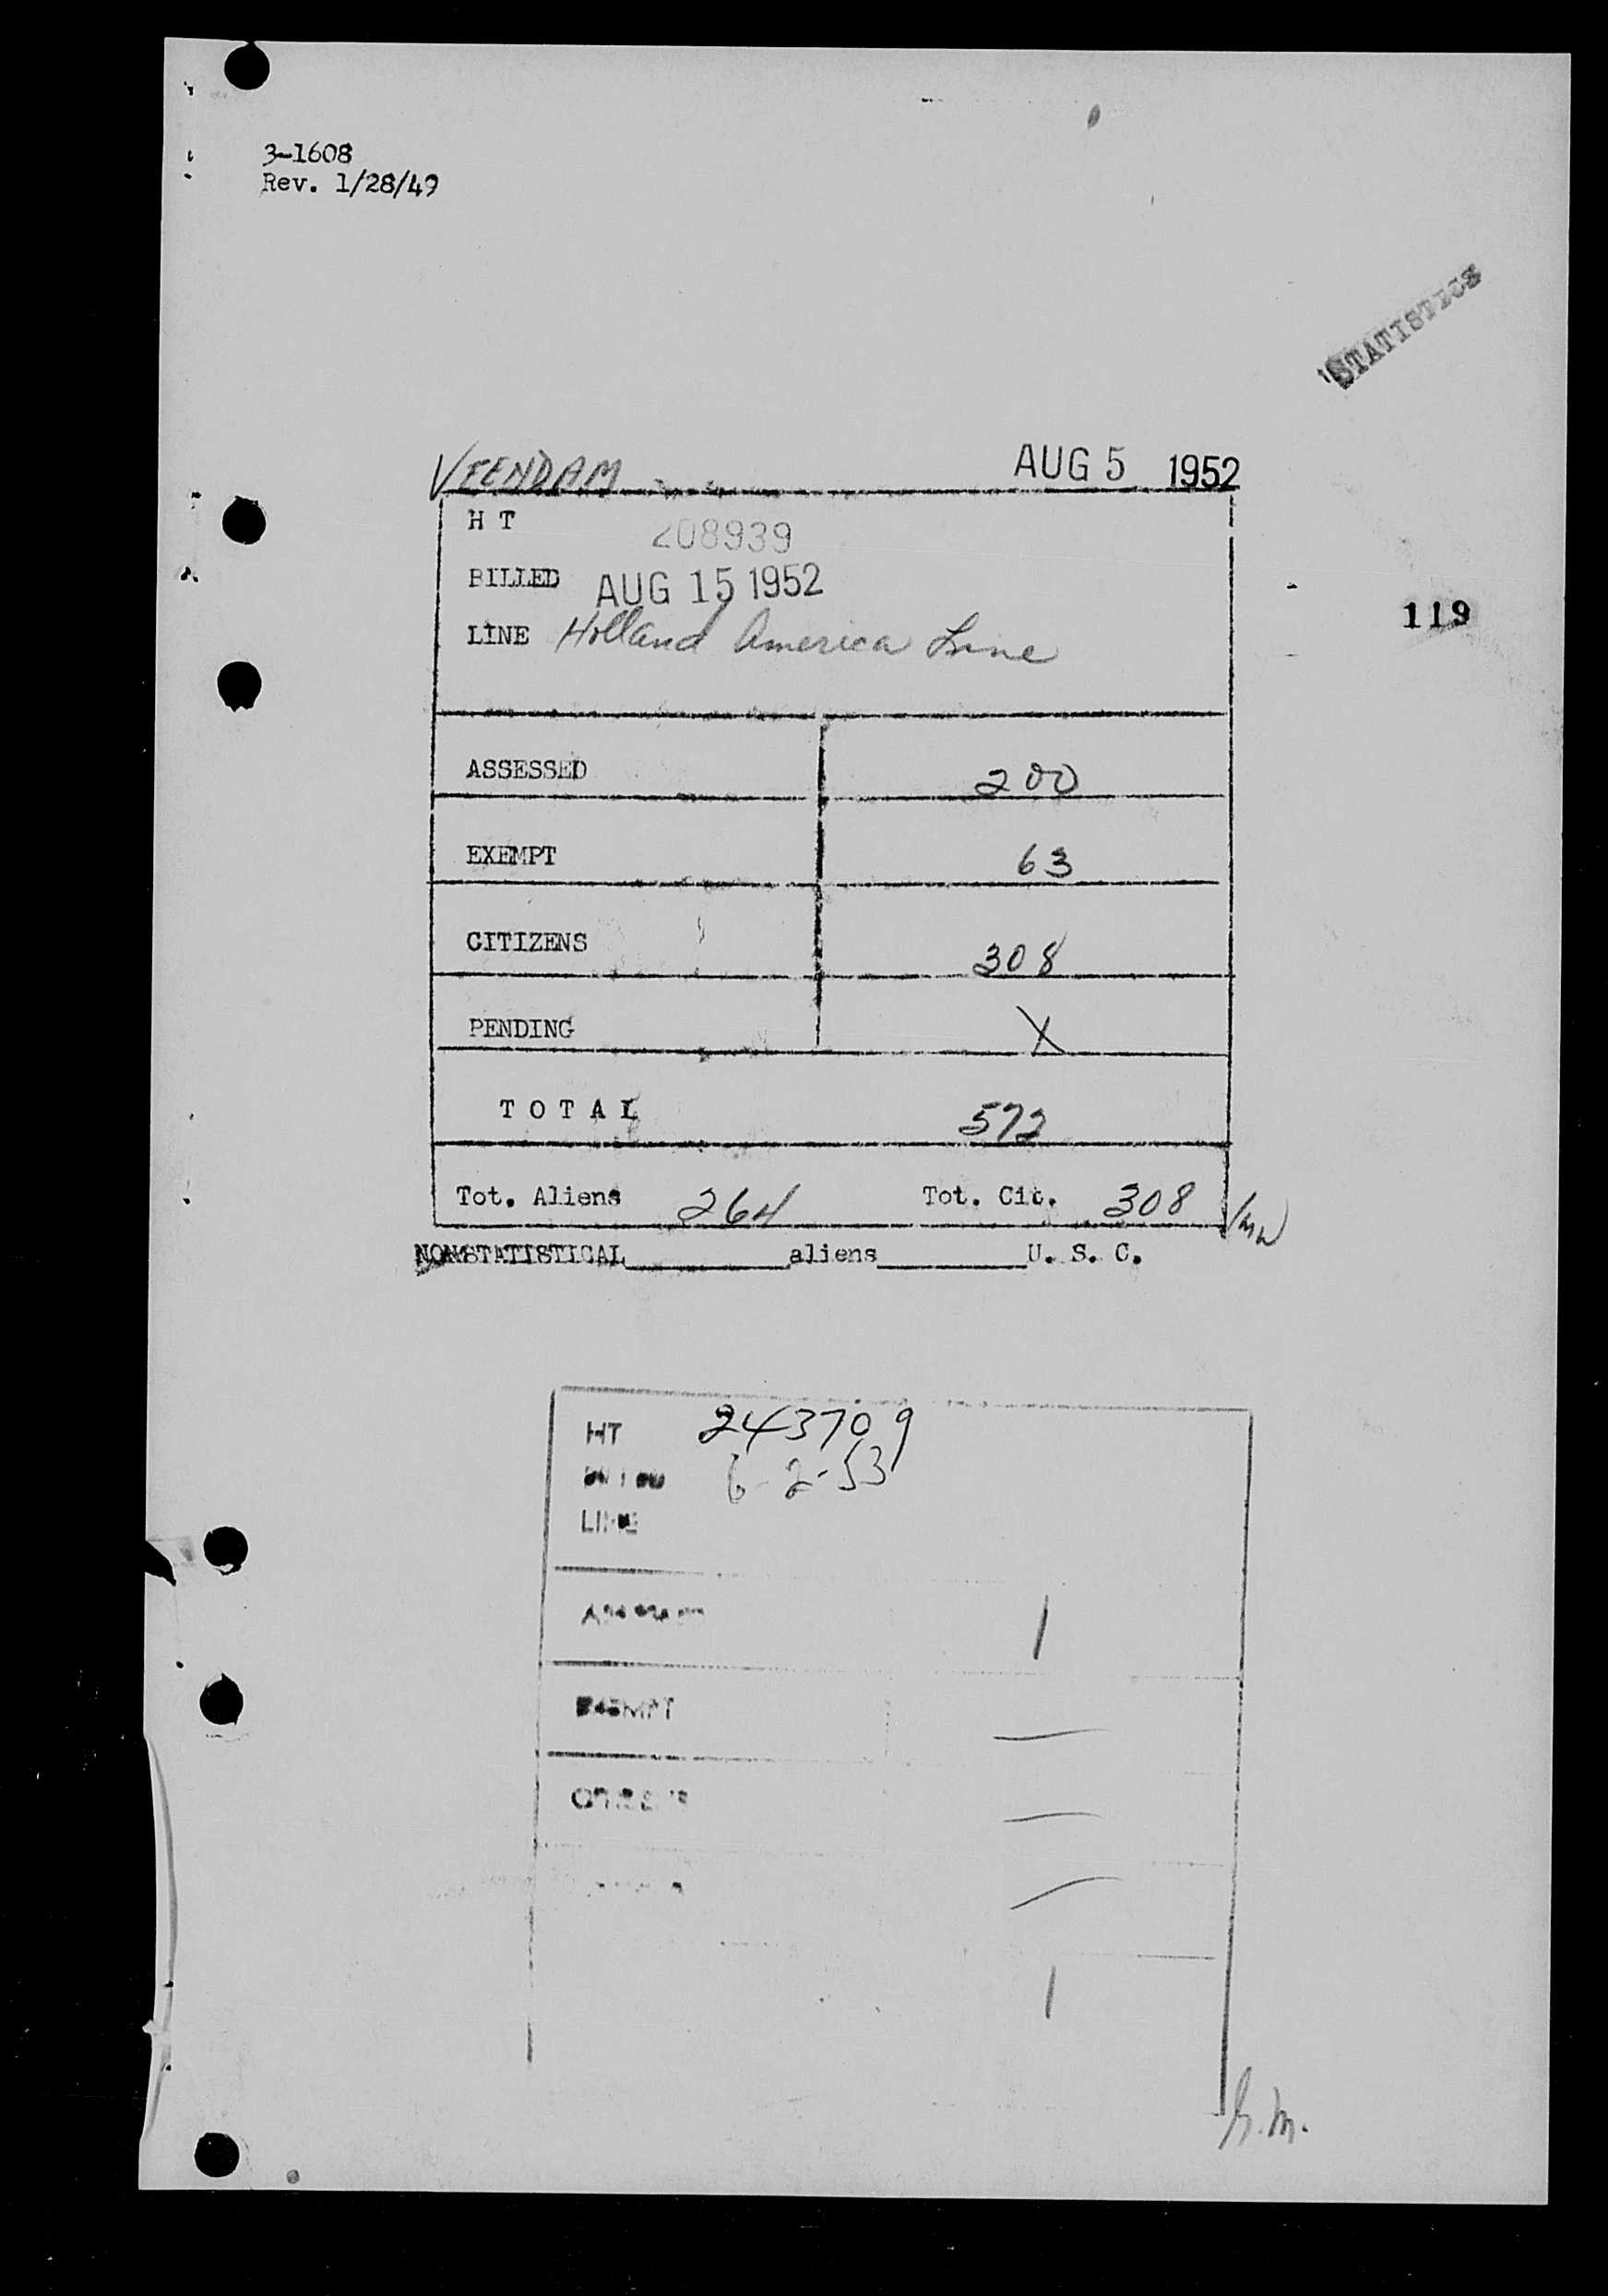 3-1608
Rev. 1/28/49
STATISTICS
VEENDAM AUG 5 1952
H T 208939
BILLED AUG 15 1952
119
LINE Holland America Line
ASSESSED 200
EXEMPT 63
CITIZENS 308
PENDING X
T O T A L 572
Tot. Aliens 264 Tot. Cit. 308
NONSTATISTICAL aliens U. S. C.
HT 243709
6-2-53
LINE
1
EXEMPT —
CITIZENS —
—
1